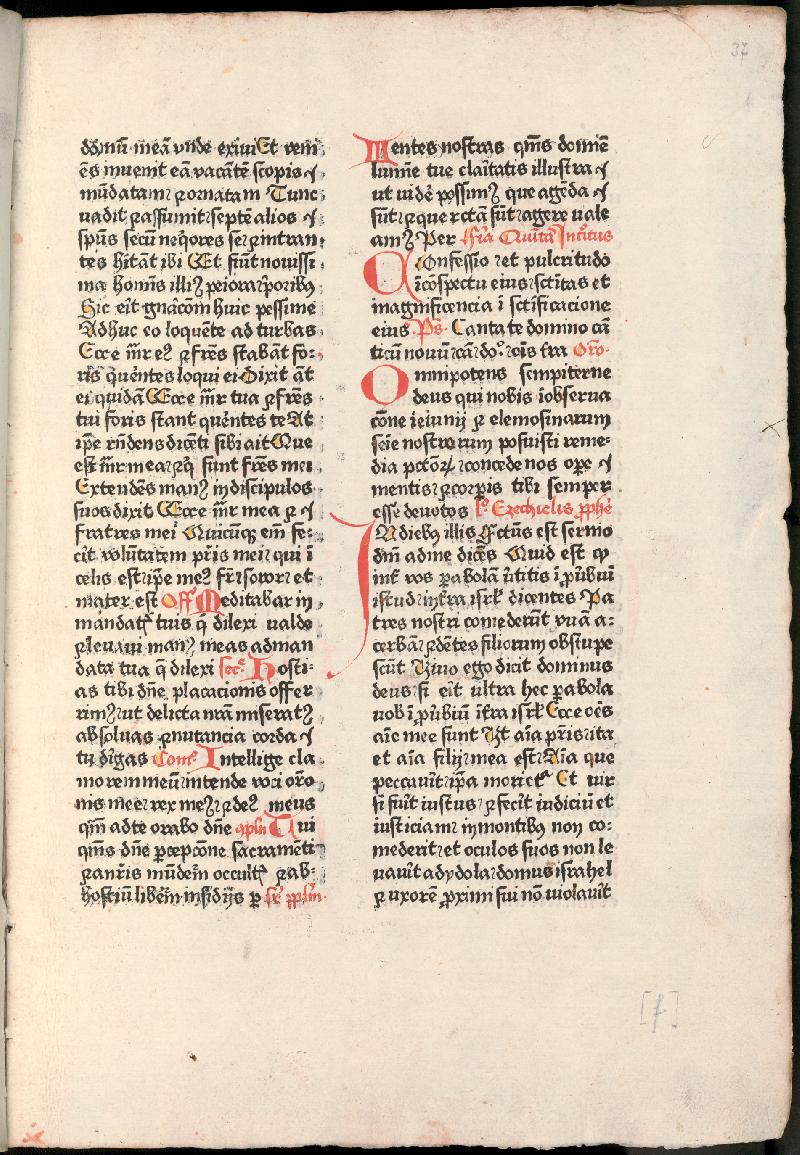 37
domū meā vnde exiui Et veni
ēs inuenit eā vacātē scopis ⁊
mūdatam ⁊ ornatam Tunc
uadit ⁊ assumit septē alios
spūs secū neq̄ores se ⁊ intran
tes hītāt ibi Et fiūt nouissi
ma homīs illiꝰ peiora p̄oribꝰ
Sic eīt gnācōni huic pessime
Adhuc eo loquēte ad turbas
Ecce mr̄ eiꝰ ⁊ frēs stabāt fo-
rīs querentes loqui ei Dixit āt
ei quidā Ecce mr̄ tua ⁊ frēs
tui foris stant querentes te At
ipē rn̄dens dicēti sibi ait Que
est mr̄ mea ⁊ q̄ sunt frēs mei
Extendēs manꝰ in discipulos
suos dixit Ecce mr̄ mea ⁊
fratres mei Quicūqꝫ em̄ fe-
cīt volūtatem pr̄is mei qui ī
celis est ipē meꝰ fr̄ sowr et
mater est Off̄ Meditabar in
mandatꝭ tuis q̄ dilexi ualde
⁊ leuaui manꝰ meas ad man
data tua q̄ dilexi sec̄ Hosti-
as tibi dn̄e placacionis offer
rimꝰ ut delicta nr̄a miseratꝰ
absoluas ⁊ nutancia corda
tu dīgas Com̄ Intellige cla
morem meū intende voci orō
nis mee rex meꝰ ⁊ deꝰ meus
qm̄ ad te orabo dn̄e 9pln̄ Tui
qm̄s dn̄e p̄cepcōne sacramēti
⁊ a nr̄is mūdem̄ occultꝭ ⁊ ab
hostiū libem̄ insidijs ꝑ sr̄ pp̄lm̄
Mentes nostras qm̄s domīe
lumīe tue claītatis illustra
ut uidē possimꝰ que agēda
sūt ⁊ que rctā sūt agere uale
amꝰ Per fīa Quīta Introitus
Confessio et pulcritudo
ī cōspectu eius sctītas et
magnificencia ī sctīficacione
eius Ps̄ Cantate domino cā
ticū nouū cā do oīs tra Orō
Omnipotens sempiterne
deus qui nobis ī obserua
cōne ieiunij ⁊ elemosinarum
seīe nostrorum posuisti reme-
dia pctōꝝ concede nos ope
mentis ⁊ corp̄is tibi semper
esse deuotos lc̄ Ezechielis pp̄he
In diebꝰ illis Fctūs est sermo
dn̄i ad me dicēs Quid est ꝙ
int̄ vos parabolā ūtitis ī pūbiū
istud in tr̄a isrl̄ dicentes Pa
tres nostri comederūt vuā a-
cerbā ⁊ dētes filiorum obstupe
scūt Viuo ego dicit dominus
deus si eīt ultra hec parabola
uob ī pūbiū ī tr̄a isrl̄ Ecce oēs
aīe mee sunt Vt aīa pr̄is ita
et aīa filij mea est Aīa que
peccauīt ipā moriet᷑ Et uir
si fuīt iustus ⁊ fecīt iudiciū et
iusticiam in montibꝰ non co-
mederīt et oculos suos non le
uauīt ad ydola domus israhel
⁊ uxorē proximi sui nō uiolauīt
[7]